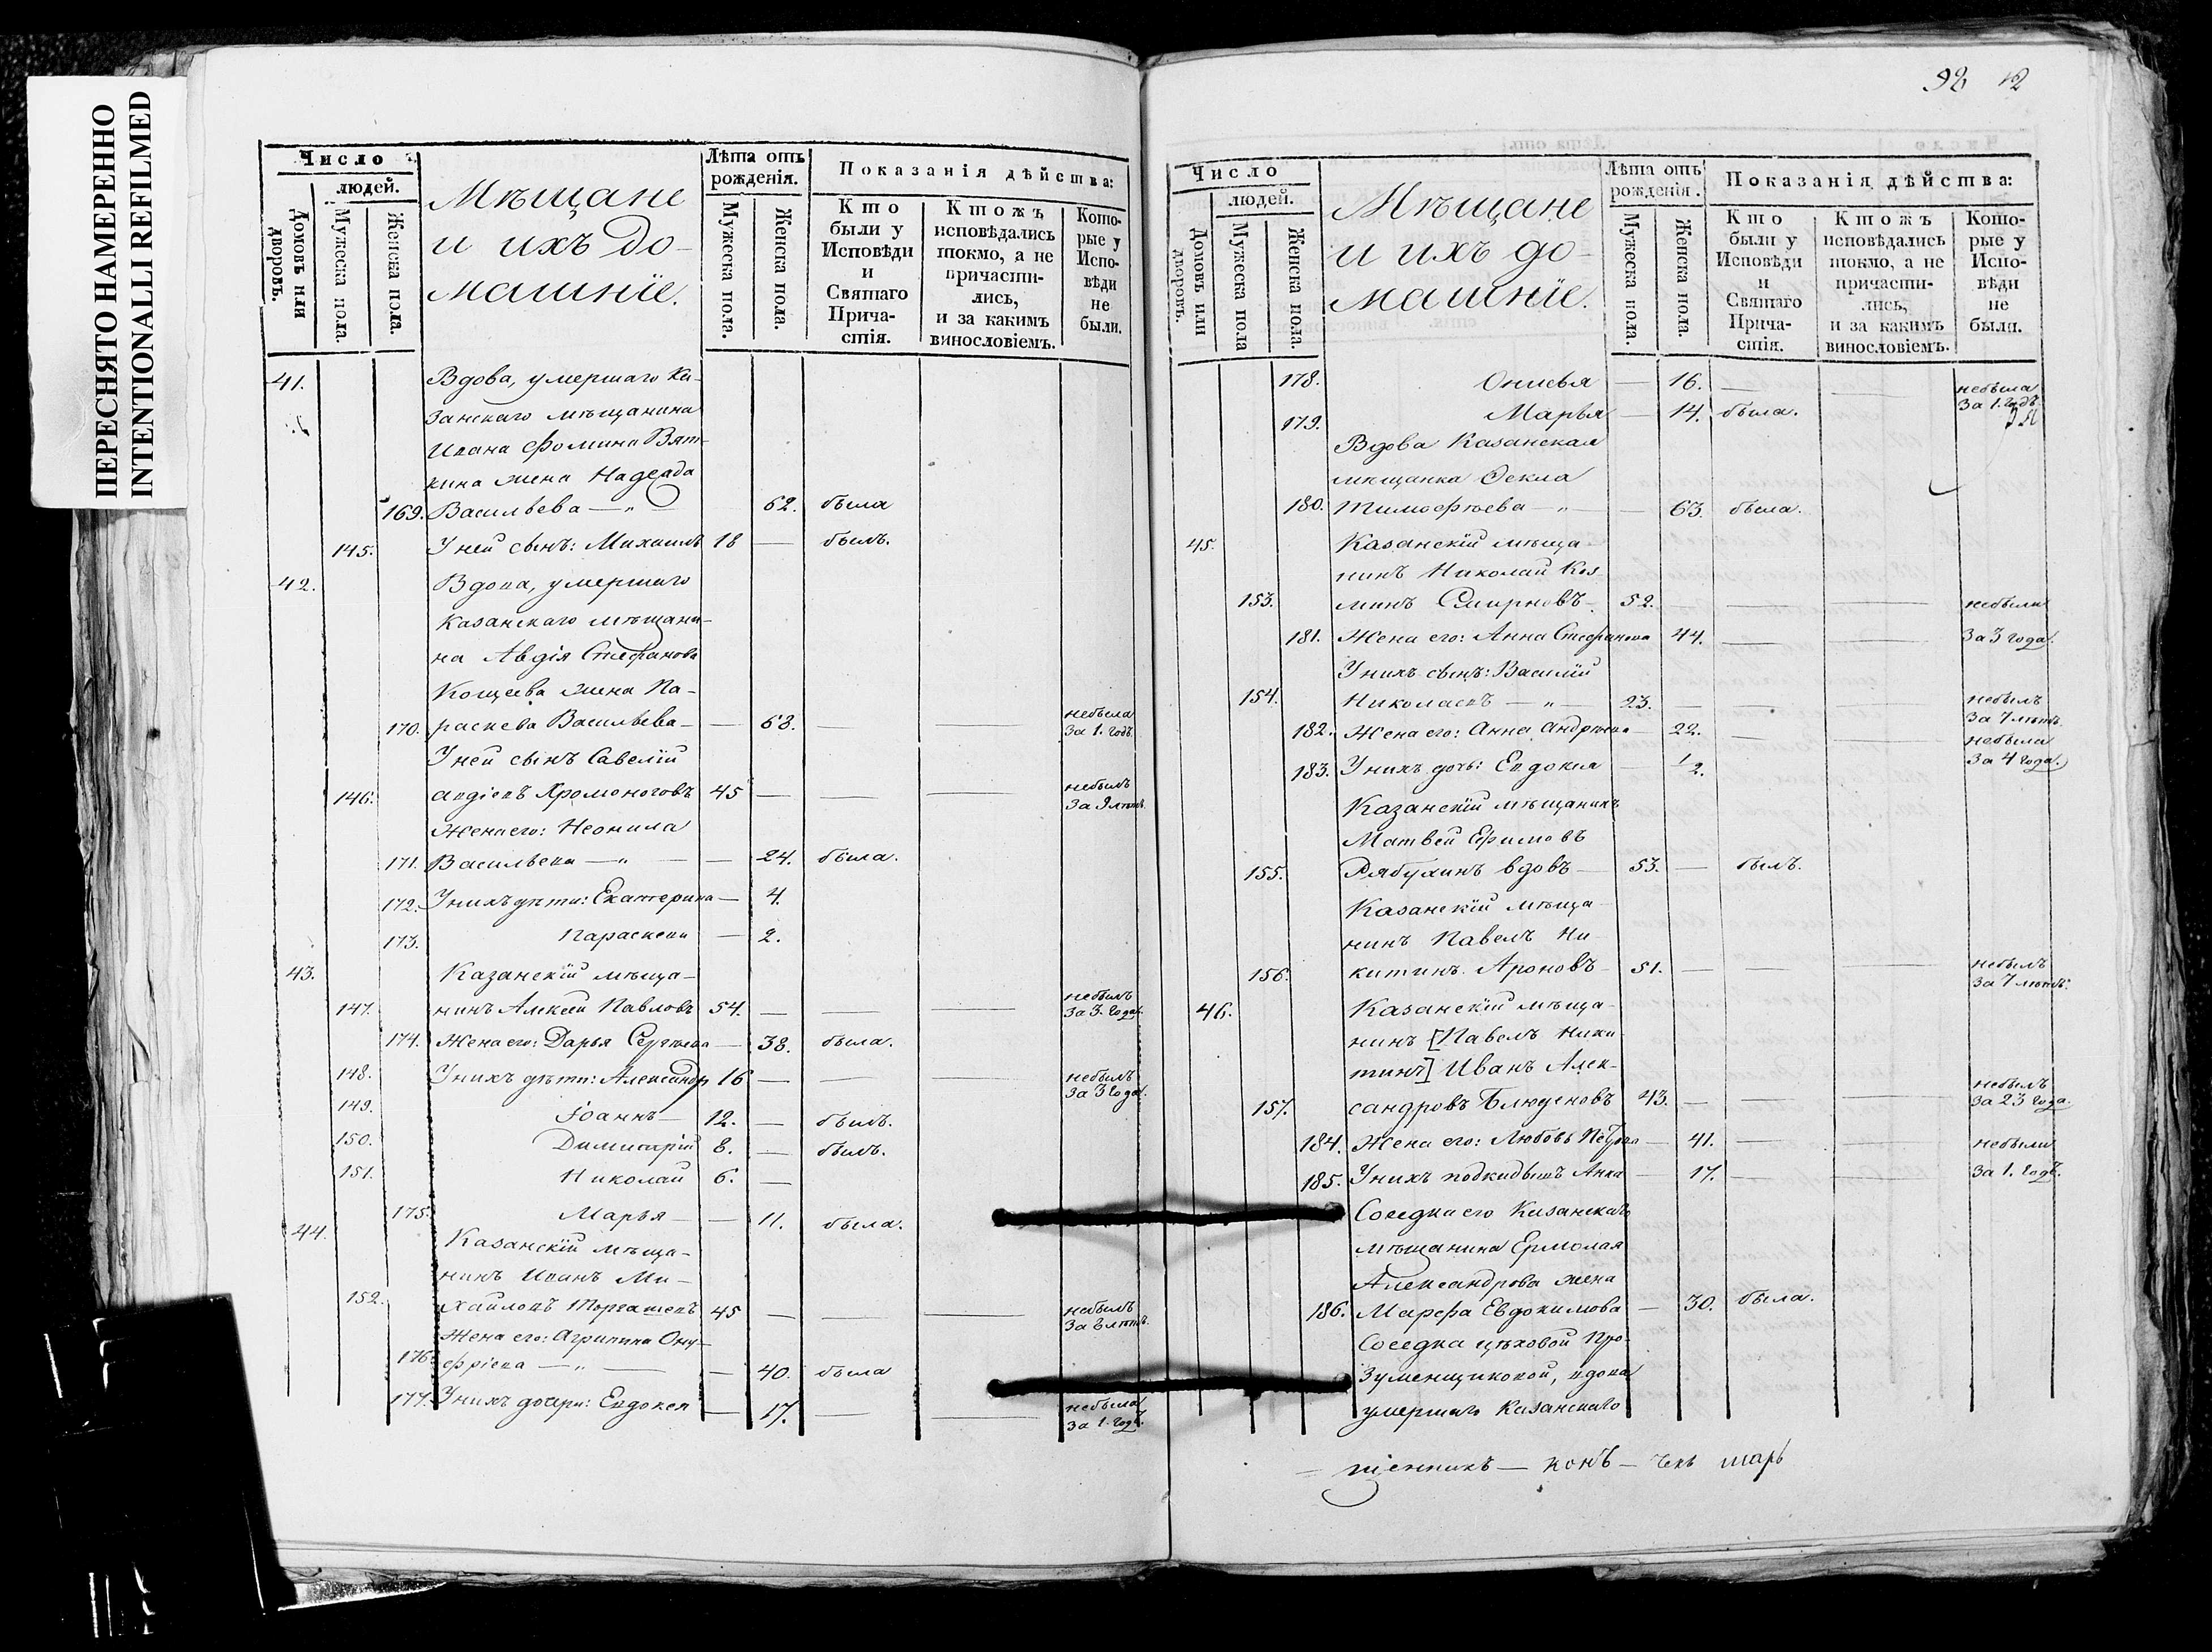 ПЕРЕСНЯТО НАМЕРЕННО
INTENTIONALLI REFILMED
Число
людей.
Домовъ или дворовъ.
Мужеска пола.
Женска пола.
Мѣщане
и ихъ до-
машніе.
Лѣта отъ рожденія.
Мужеска пола.
Женска пола.
Показанія дѣйства:
Кто были у Исповѣди и Святаго Прича-стія.
Ктожъ исповѣдались токмо, а не причасти-лись, и за какимъ винословіемъ.
Кото-рые у Испо-вѣди не были.
41. Вдова, умершаго Ка-
занскаго мѣщанина
Ивана Фомина Вят-
кина жена Надежда
169. Васильева — „ — 62. была
145. У ней сынъ: Михаилъ 18 — былъ.
42. Вдова, умершаго
Казанскаго мѣщани-
на Авдія Стефанова
Кощеева жена Па-
170. раскева Васильева — — 63. — — небыла
за 1. годъ.
У ней сынъ Савелій
146. Авдіевъ Хромоноговъ 45 — — — небылъ
за 9 лѣтъ.
Жена его: Неонила
171. Васильева — „ — — 24. была.
172. У нихъ дѣти: Екатерина — 4.
173. Параскева — 2.
43. Казанскій мѣща-
147. нинъ Алексей Павловъ 54. — — — небылъ
за 3. года.
174. Жена его: Дарья Сергѣева — 38. была.
148. У нихъ дѣти: Александръ 16 — — — небылъ
за 3 года.
149. Іоаннъ — 12. — былъ.
150. Димитрій 8. — былъ.
151. Николай 6. —
175. Марья — — 11. была.
44. Казанскій мѣща-
нинъ Иванъ Ми-
152. хайловъ Торгашевъ 45 — — — небылъ
за 8 лѣтъ.
Жена его: Агрипина Ону-
176. фріева — „ — — 40. была
177. У нихъ дочери: Евдокея — 17. — — небыла
за 1. годъ.
98 12
Число
людей.
Домовъ или дворовъ.
Мужеска пола
Женска пола.
Мѣщане
и ихъ до-
машніе.
Лѣта отъ рожденія.
Мужеска пола.
Женска пола.
Показанія дѣйства:
Кто были у Исповѣди и Святаго Прича-стія.
Ктожъ исповѣдались токмо, а не причасти-лись, и за какимъ винословіемъ.
Кото-рые у Испо-вѣди не были.
178. Онисья — 16. — — небыла
за 1. годъ
179. Марья — 14. была.
Вдова Казанская
мѣщанка Ѳекла
180. Тимофѣева — „ — — 63. была.
45. Казанскій мѣща-
нинъ Николай Коз-
153. минъ Смирновъ. 52. — — — небыли
181. Жена его: Анна Стефанова 44. — — за 3 года.
У нихъ сынъ: Василій
154. Николаевъ — „ — 23. — — — небылъ
за 7 лѣтъ.
182. Жена его: Анна Андрѣева — 22. — — небыла
за 4 года.
183. У нихъ дочь: Евдокея — 1/2.
Казанскій мѣщанинъ
Матвей Ефимовъ
155. Рябухинъ вдовъ — 53. — былъ.
Казанскій мѣща-
нинъ Павелъ Ни-
156. китинъ. Ароновъ — 51. — — — небылъ
за 7 лѣтъ.
46. Казанскій мѣща-
нинъ [Павелъ Ники-
тинъ] Иванъ Алек-
157. сандровъ Блюденовъ 43. — — — небылъ
за 23 года.
184. Жена его: Любовь Петрова — 41. — — небыли
185. У нихъ подкидышъ Анна — 17. — — за 1. годъ.
Соседка его Казанскаго
мѣщанина Ермолая
Александрова жена
186. Марфа Евдокимова — 30. была.
Соседка цѣховой Про-
зуменщиковой, вдова
умершаго Казанскаго